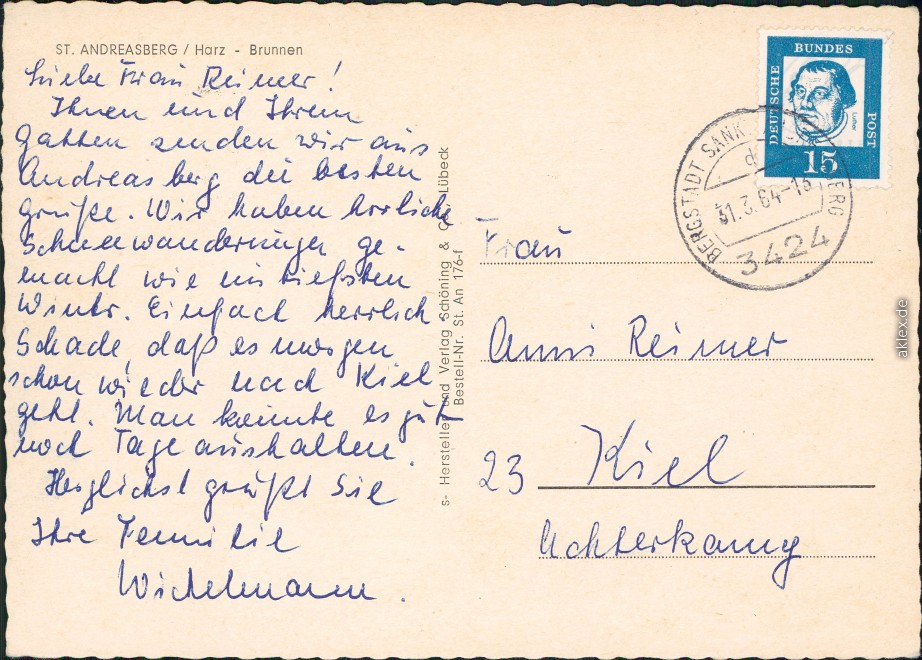 ST. ANDREASBERG / Harz - Brunnen
Liebe Frau Reimer!
Ihnen und Ihrem
Gatten senden wir aus
Andreasberg die besten
Grüße. Wir haben herrliche
Schneewanderungen ge-
macht wie im tiefsten
Winter. Einfach herrlich
Schade, daß es morgen
schon wieder nach Kiel
geht. Man könnte es gut
noch Tage aushalten.
Herzlichst grüßt Sie
Ihre Familie
s- Hersteller und Verlag Schöning & Lübeck
Bestell-Nr. St. An 176-f
DEUTSCHE
BUNDES
POST
Luther
15
BERGSTADT SANK BERG
31.3.64-13
3424
Frau
Anni Reimer
23 Kiel
Achterkamp
aklex.de